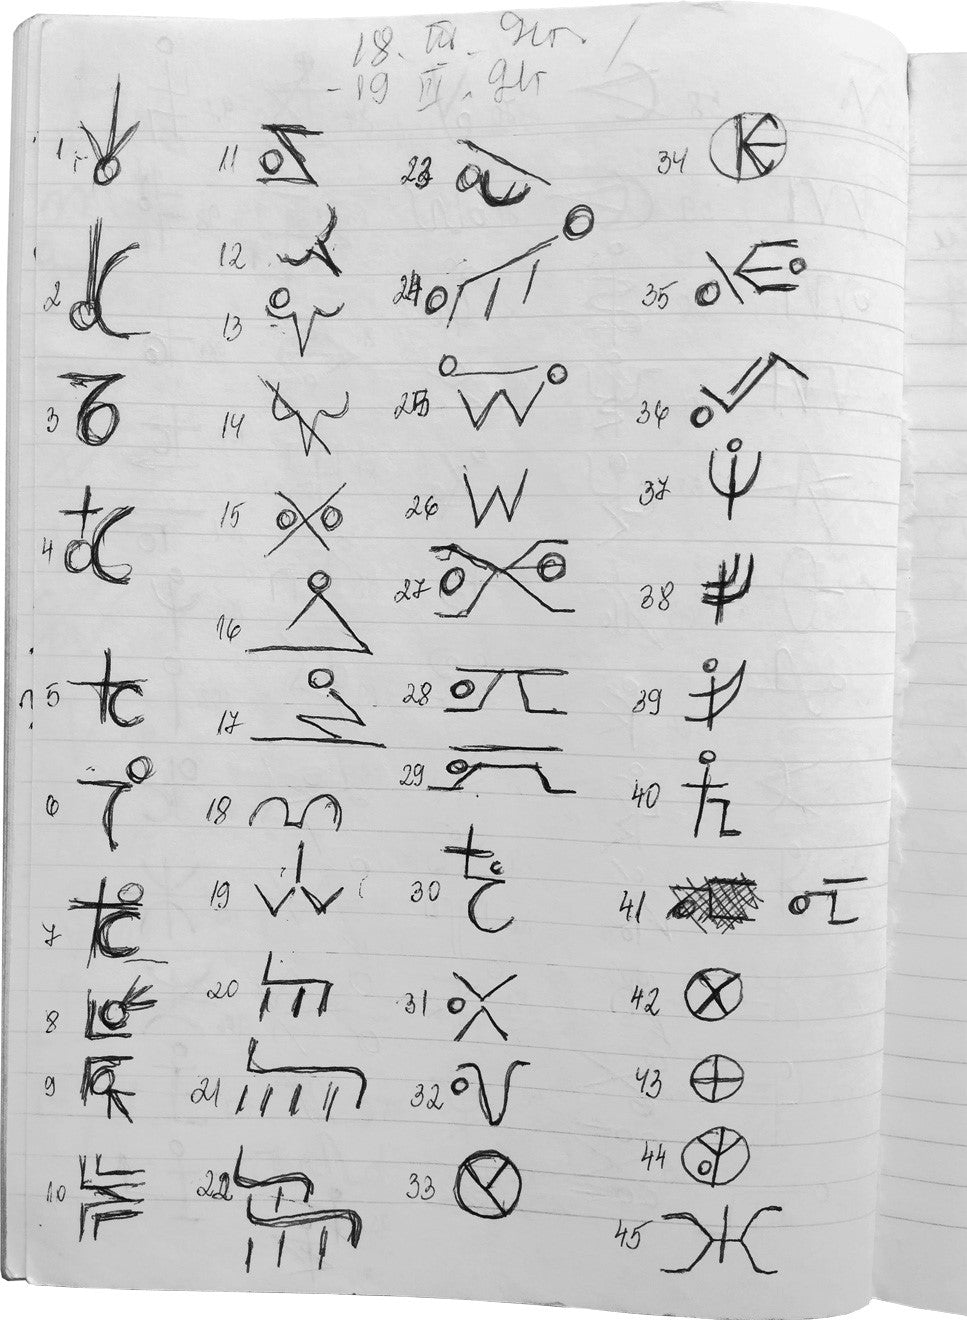 18. III.
19 III.
1
2
3
4
5
6
7
8
9
10
11
12
13
14
15
16
17
18
19
20
21
22
23
24
25
26
27
28
29
30
31
32
33
34
35
36
37
38
39
40
41
42
43
44
45